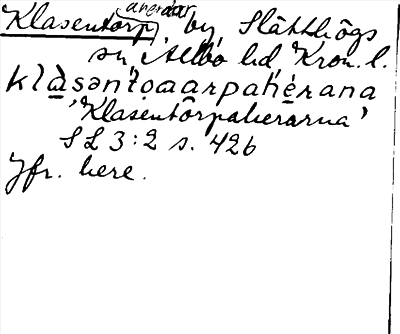 Klasentorp, by, Slätthögs
sn, Allbo hd, Kron. l.
klàsəntoarpahérana
'Klasentorpaherarna'
SL 3:2 s. 426
Jfr. here.